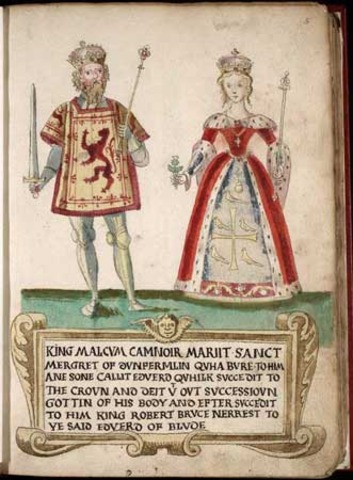 KING MALCVM CAMNOIR MARIIT SANCT
MERGRET OF DVNFERMLIN QVHA BVRE TO HIM
ANE SONE CALLIT EDVERD QVHILK SVCCEDIT TO
THE CROVN AND DEIT VT OVT SUCCESSIOVN
GOTTIN OF HIS BODY AND EFTER SVCCEDIT
TO HIM KING ROBERT BRVCE NERREST TO
YE SAID EDVERD OF BLVDE